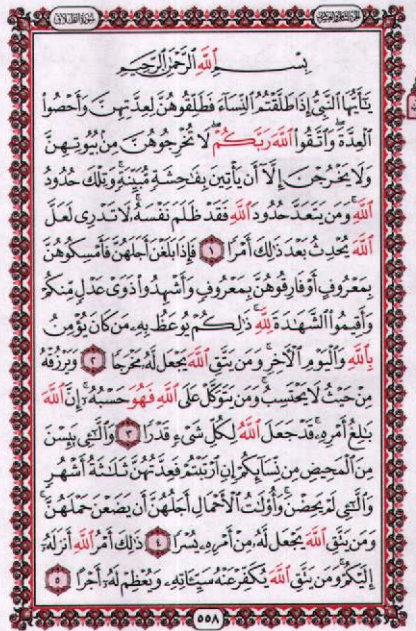 سورة الطلاق
الجزء الثامن والعشرون
بِسْمِ اللَّهِ الرَّحْمَٰنِ الرَّحِيمِ
يَٰٓأَيُّهَا النَّبِيُّ إِذَا طَلَّقْتُمُ النِّسَآءَ فَطَلِّقُوهُنَّ لِعِدَّتِهِنَّ وَأَحْصُوا
الْعِدَّةَ ۖ وَاتَّقُوا اللَّهَ رَبَّكُمْ ۖ لَا تُخْرِجُوهُنَّ مِنۢ بُيُوتِهِنَّ
وَلَا يَخْرُجْنَ إِلَّآ أَن يَأْتِينَ بِفَٰحِشَةٍ مُّبَيِّنَةٍ ۚ وَتِلْكَ حُدُودُ
اللَّهِ ۚ وَمَن يَتَعَدَّ حُدُودَ اللَّهِ فَقَدْ ظَلَمَ نَفْسَهُۥ ۚ لَا تَدْرِى لَعَلَّ
اللَّهَ يُحْدِثُ بَعْدَ ذَٰلِكَ أَمْرًا ١ فَإِذَا بَلَغْنَ أَجَلَهُنَّ فَأَمْسِكُوهُنَّ
بِمَعْرُوفٍ أَوْ فَارِقُوهُنَّ بِمَعْرُوفٍ وَأَشْهِدُوا ذَوَىْ عَدْلٍ مِّنكُمْ
وَأَقِيمُوا الشَّهَٰدَةَ لِلَّهِ ۚ ذَٰلِكُمْ يُوعَظُ بِهِۦ مَن كَانَ يُؤْمِنُ
بِاللَّهِ وَالْيَوْمِ الْآخِرِ ۚ وَمَن يَتَّقِ اللَّهَ يَجْعَل لَّهُۥ مَخْرَجًا ٢ وَيَرْزُقْهُ
مِنْ حَيْثُ لَا يَحْتَسِبُ ۚ وَمَن يَتَوَكَّلْ عَلَى اللَّهِ فَهُوَ حَسْبُهُۥٓ ۚ إِنَّ اللَّهَ
بَٰلِغُ أَمْرِهِۦ ۚ قَدْ جَعَلَ اللَّهُ لِكُلِّ شَىْءٍ قَدْرًا ٣ وَالَّٰٓـِٔى يَئِسْنَ
مِنَ الْمَحِيضِ مِن نِّسَآئِكُمْ إِنِ ارْتَبْتُمْ فَعِدَّتُهُنَّ ثَلَٰثَةُ أَشْهُرٍ
وَالَّٰٓـِٔى لَمْ يَحِضْنَ ۚ وَأُولَٰتُ الْأَحْمَالِ أَجَلُهُنَّ أَن يَضَعْنَ حَمْلَهُنَّ ۚ
وَمَن يَتَّقِ اللَّهَ يَجْعَل لَّهُۥ مِنْ أَمْرِهِۦ يُسْرًا ٤ ذَٰلِكَ أَمْرُ اللَّهِ أَنزَلَهُۥٓ
إِلَيْكُمْ ۚ وَمَن يَتَّقِ اللَّهَ يُكَفِّرْ عَنْهُ سَيِّـَٔاتِهِۦ وَيُعْظِمْ لَهُۥٓ أَجْرًا ٥
٥٥٨